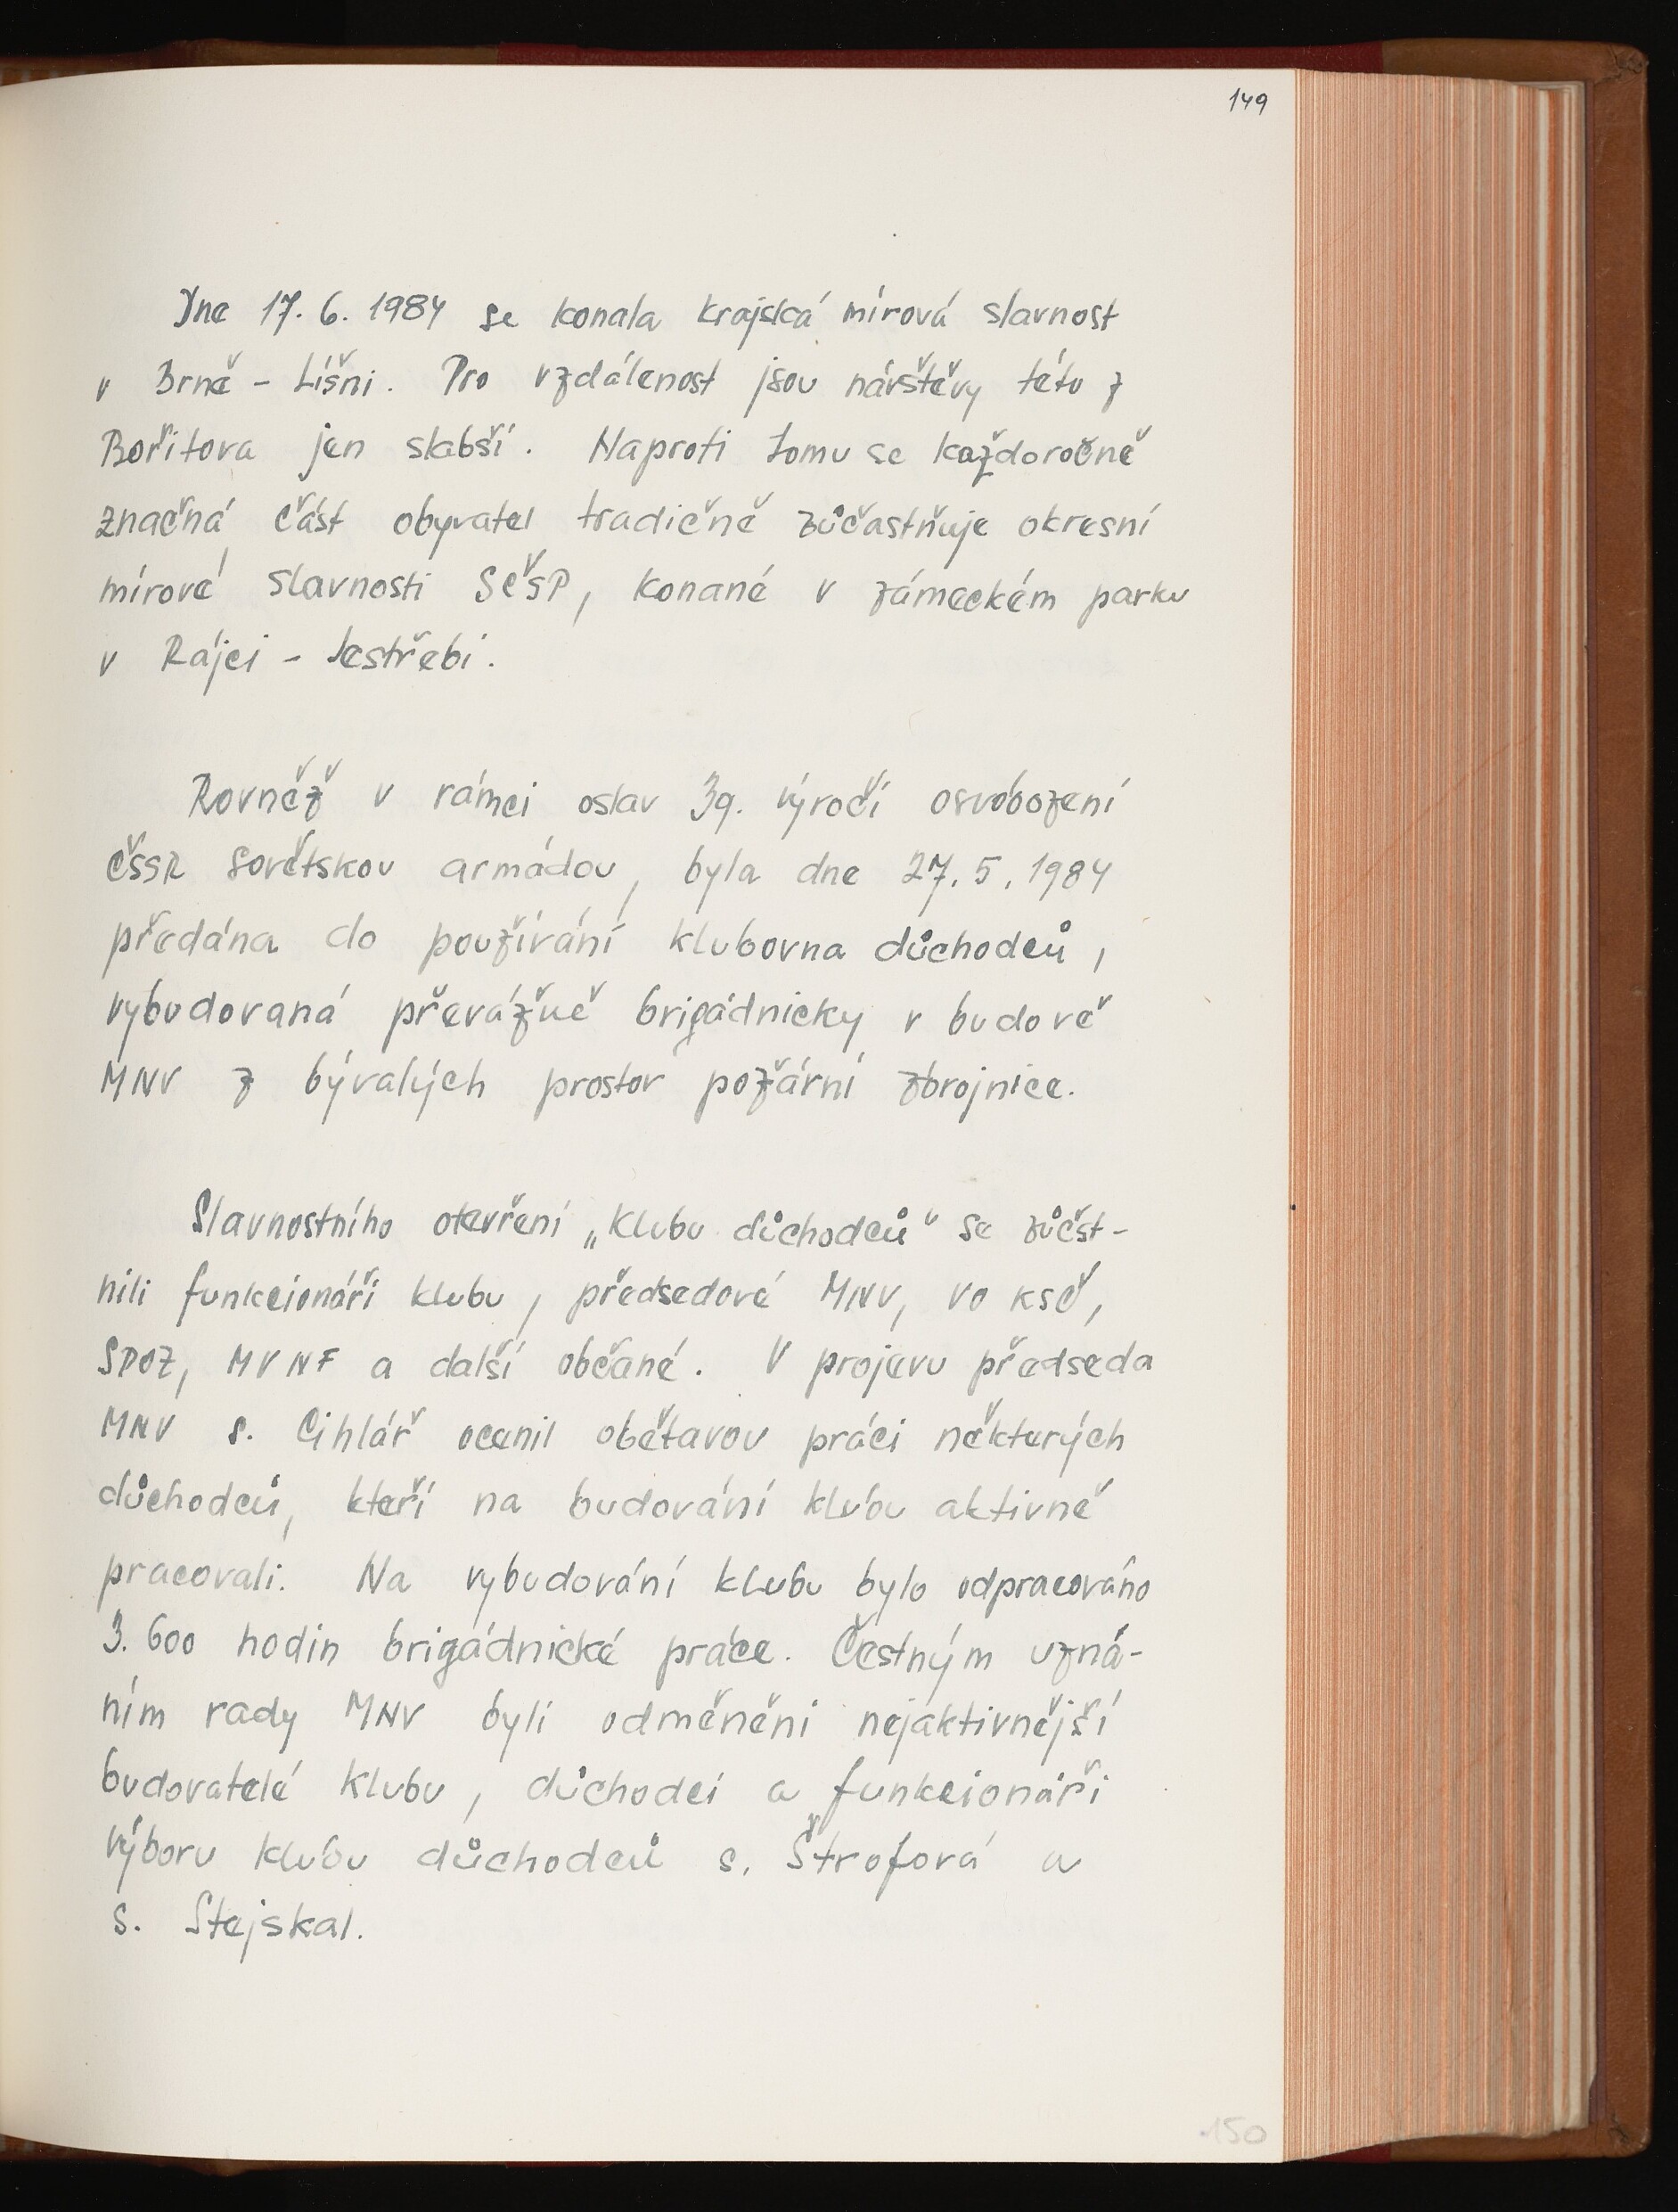 149
Dne 17. 6. 1984 se konala krajská mírová slavnost
v Brně - Líšni. Pro vzdálenost jsou návštěvy této z
Bořitova jen slabší. Naproti tomu se každoročně
značná část obyvatel tradičně zůčastňuje okresní
mírové slavnosti SČSP, konané v zámeckém parku
v Rájci - Jestřebí.
Rovněž v rámci oslav 39. výročí osvobození
ČSSR Sovětskou armádou, byla dne 27. 5. 1984
předána do používání klubovna důchodců,
vybudovaná převážně brigádnicky v budově
MNV z bývalých prostor požární zbrojnice.
Slavnostního otevření „Klubu důchodců" se zůčst-
nili funkcionáři klubu, předsedové MNV, VO KSČ,
SPOZ, MV NF a další občané. V projevu předseda
MNV s. Cihlář ocenil obětavou práci některých
důchodců, kteří na budování klubu aktivně
pracovali. Na vybudování klubu bylo odpracováno
3.600 hodin brigádnické práce. Čestným uzná-
ním rady MNV byli odměněni nejaktivnější
budovatelé klubu, důchodci a funkcionáři
výboru klubu důchodců s. Štrofová a
s. Stejskal.
150